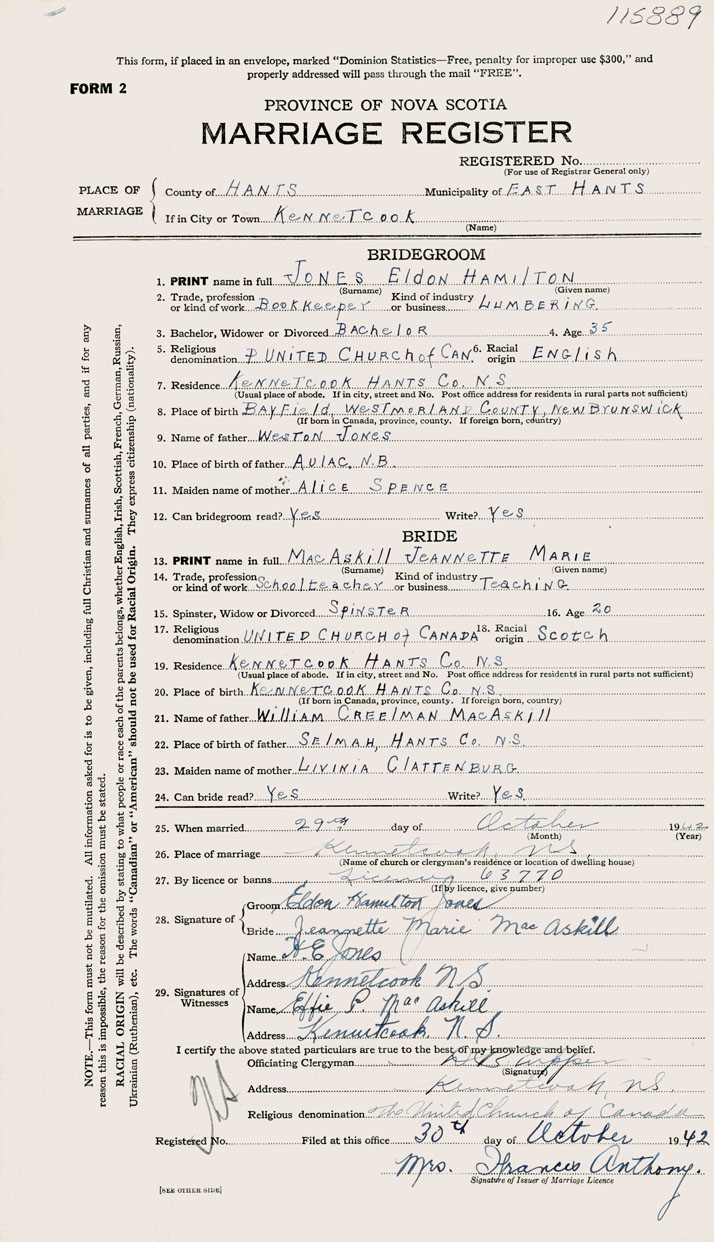 115889
This form, if placed in an envelope, marked “Dominion Statistics—Free, penalty for improper use $300,” and
properly addressed will pass through the mail “FREE”.
FORM 2
PROVINCE OF NOVA SCOTIA
MARRIAGE REGISTER
REGISTERED No.
(For use of Registrar General only)
PLACE OF MARRIAGE
County of HANTS Municipality of EAST HANTS
If in City or Town KENNETCOOK
(Name)
BRIDEGROOM
1. PRINT name in full JONES ELDON HAMILTON
(Surname) (Given name)
2. Trade, profession or kind of work BOOKKEEPER Kind of industry or business LUMBERING
3. Bachelor, Widower or Divorced BACHELOR 4. Age 35
5. Religious denomination UNITED CHURCH of CAN. 6. Racial origin ENGLISH
7. Residence KENNETCOOK HANTS Co. N.S.
(Usual place of abode. If in city, street and No. Post office address for residents in rural parts not sufficient)
8. Place of birth BAYFIELD, WESTMORLAND COUNTY, NEW BRUNSWICK
(If born in Canada, province, county. If foreign born, country)
9. Name of father WESTON JONES
10. Place of birth of father AULAC, N.B.
11. Maiden name of mother ALICE SPENCE
12. Can bridegroom read? Yes Write? Yes
BRIDE
13. PRINT name in full MacAskill JEANNETTE MARIE
(Surname) (Given name)
14. Trade, profession or kind of work Schoolteacher Kind of industry or business TEACHING
15. Spinster, Widow or Divorced SPINSTER 16. Age 20
17. Religious denomination UNITED CHURCH of CANADA 18. Racial origin Scotch
19. Residence KENNETCOOK HANTS Co. N.S.
(Usual place of abode. If in city, street and No. Post office address for residents in rural parts not sufficient)
20. Place of birth KENNETCOOK HANTS Co. N.S.
(If born in Canada, province, county. If foreign born, country)
21. Name of father WILLIAM CREELMAN MACASKILL
22. Place of birth of father SELMAH, HANTS Co. N.S.
23. Maiden name of mother LIVINIA CLATTENBURG
24. Can bride read? Yes Write? Yes
25. When married 29th day of October 1942
(Month) (Year)
26. Place of marriage Kennetcook, N.S.
(Name of church or clergyman's residence or location of dwelling house)
27. By licence or banns 63770
(If by licence, give number)
28. Signature of
Groom Eldon Hamilton Jones
Bride Jeannette Marie MacAskill
29. Signatures of Witnesses
Name H.E. Jones
Address Kennetcook N.S.
Name Effie P. MacAskill
Address Kennetcook. N.S.
I certify the above stated particulars are true to the best of my knowledge and belief.
Officiating Clergyman
(Signature)
Address Kennetcook, N.S.
Religious denomination The United Church of Canada
Registered No. Filed at this office 30th day of October 1942
Mrs. Frances Anthony.
Signature of Issuer of Marriage Licence
[SEE OTHER SIDE]
NOTE.—This form must not be mutilated. All information asked for is to be given, including full Christian and surnames of all parties, and if for any
reason this is impossible, the reason for the omission must be stated.
RACIAL ORIGIN will be described by stating to what people or race each of the parents belongs, whether English, Irish, Scottish, French, German, Russian,
Ukrainian (Ruthenian), etc. The words “Canadian” or “American” should not be used for Racial Origin. They express citizenship (nationality).